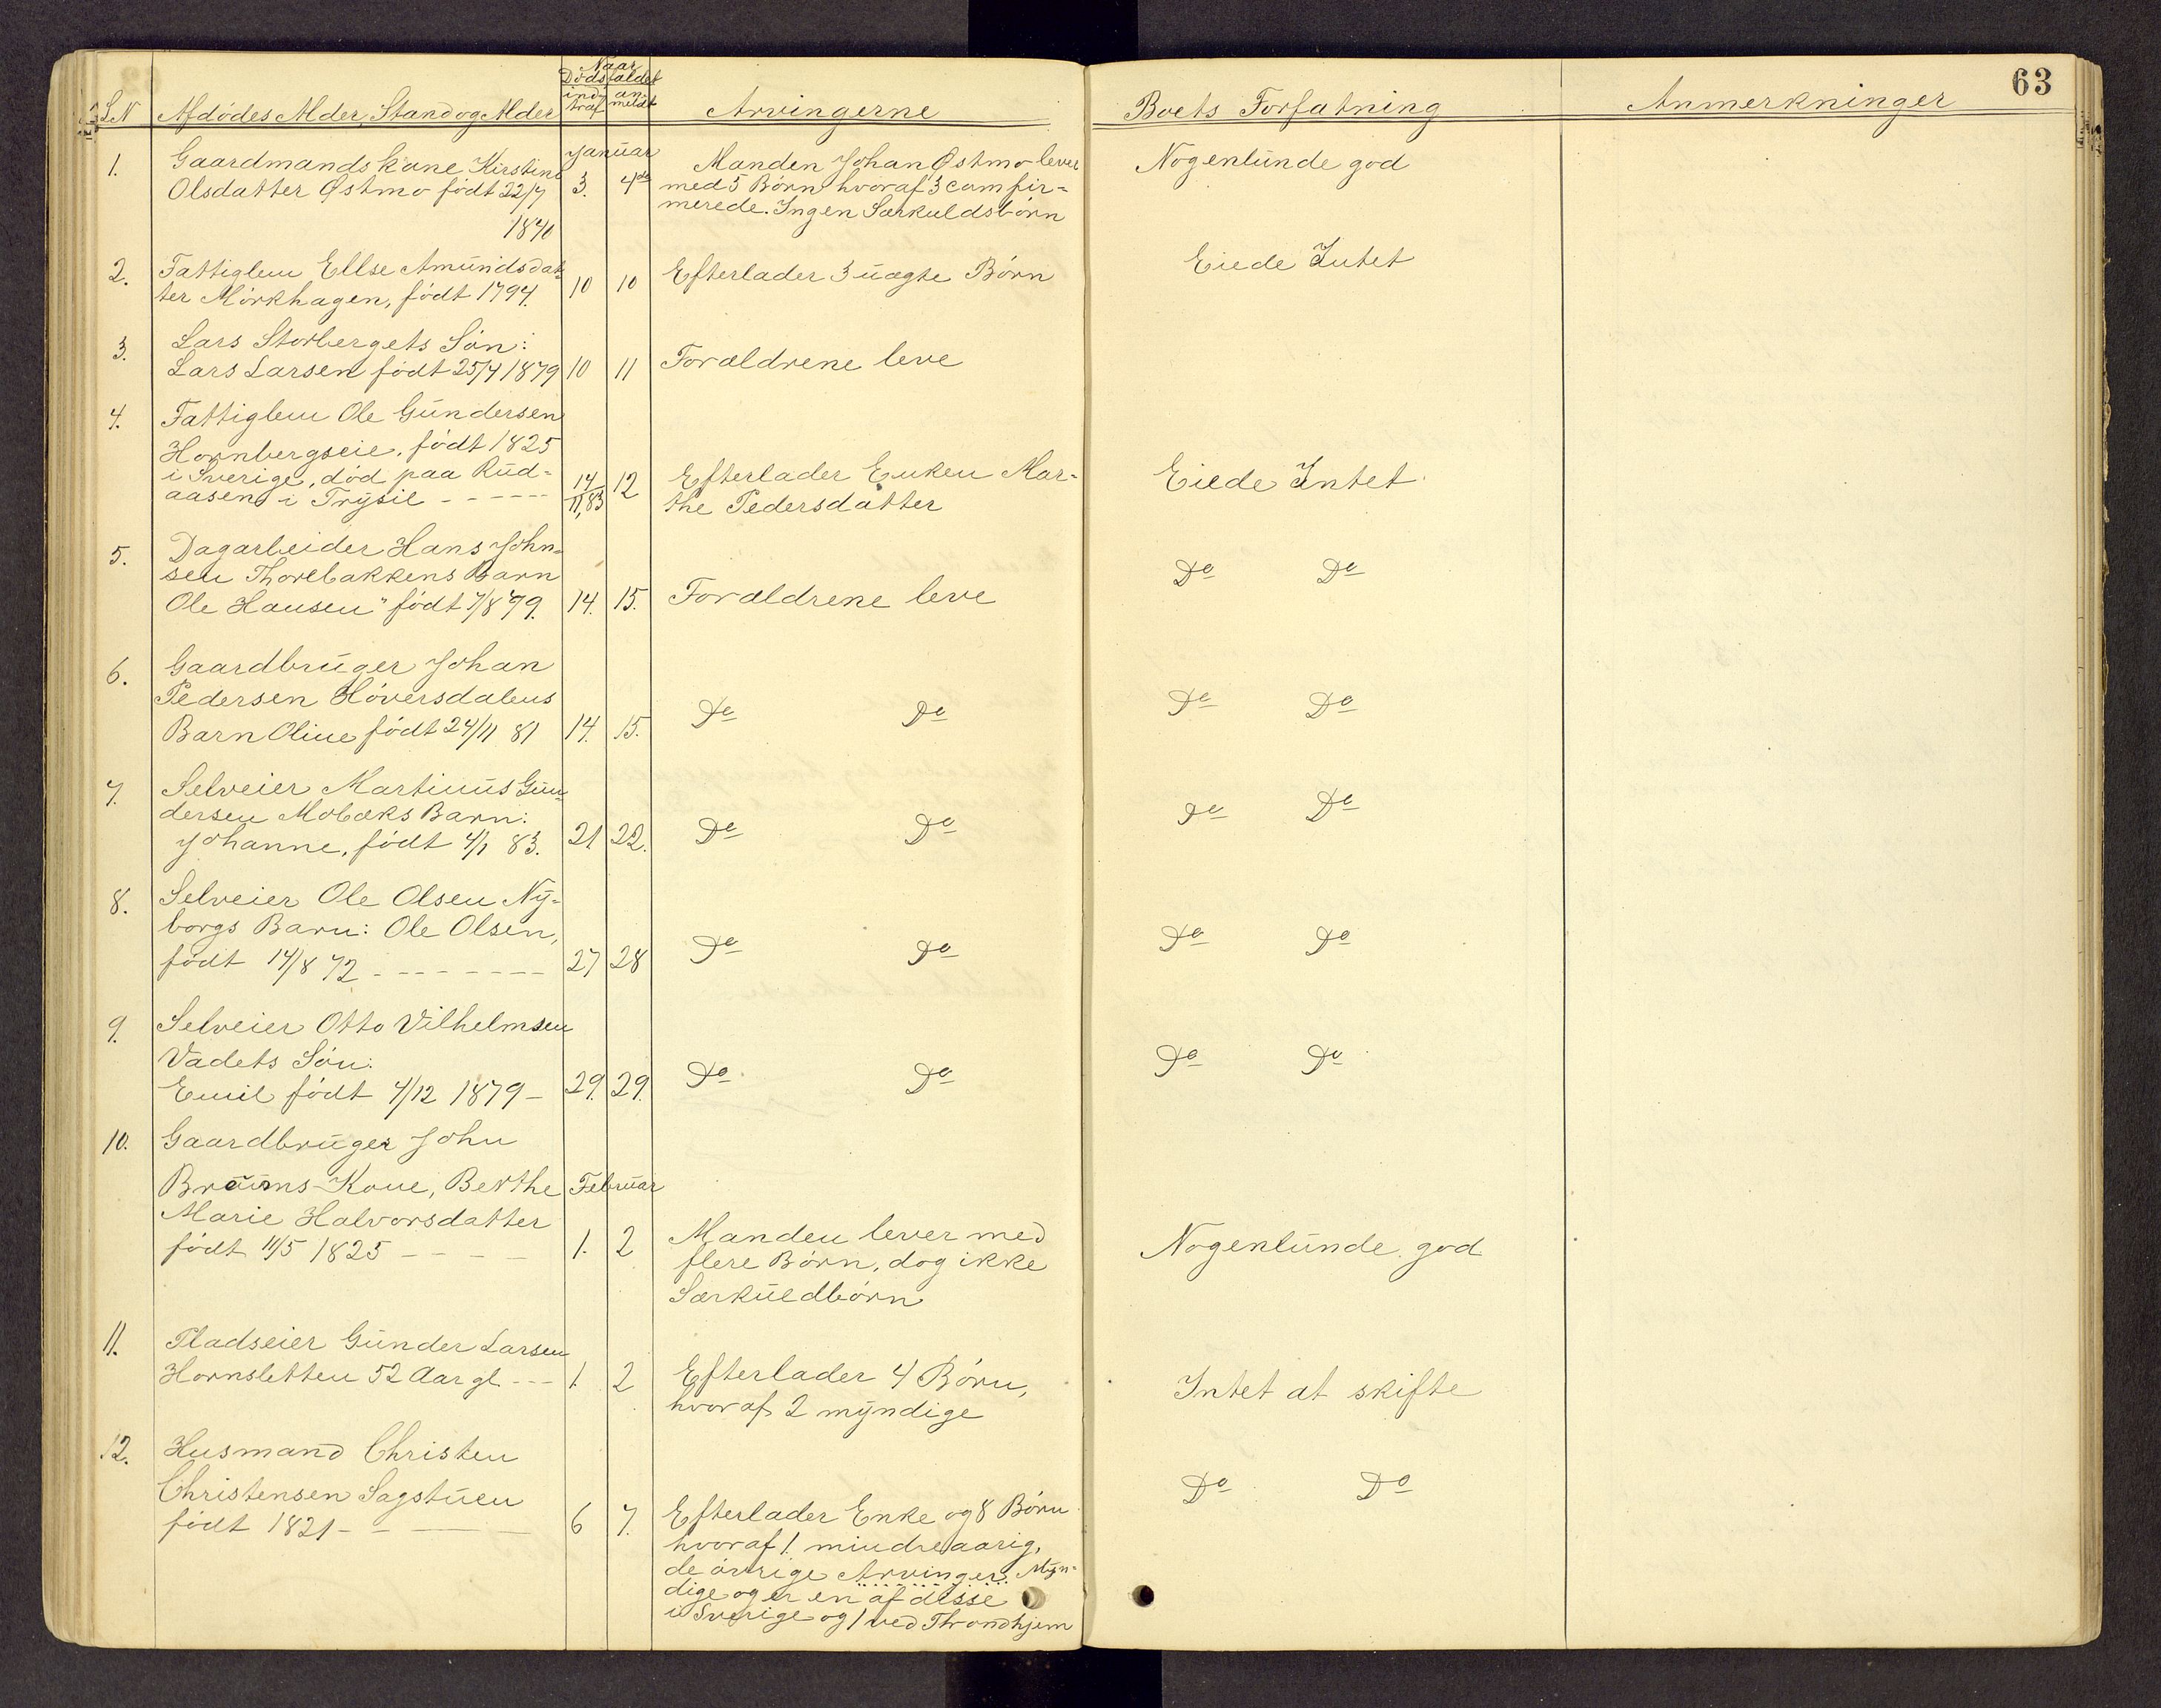 63
L.N Afdödes Alder, Stand og Alder Naar Dödsfaldet indtraf anmeldt Arvingerne Boets Forfatning Anmerkninger
Januar
1. Gaardmandskane Kirstine Manden Johan Østmo lever Nogenlunde god
Olsdatter Østmo födt 22/7 3. 4de med 5 Börn hvoraf 3 comfir-
1840 merede. Ingen Særkuldsbörn
2. Fattiglem Ellse Amundsdat-
ter Mörkhagen, födt 1794. 10 10 Efterlader 3 uægte Börn Eiede Intet
3. Lars Storbergets Sön:
Lars Larsen födt 25/4 1879 10 11 Forældrene leve
4. Fattiglem Ole Gundersen
Hornbergseie, födt 1825
i Sverige, död paa Rud- 14 12 Efterlader Enken Mar- Eiede Intet
aasen i Trysil - - - - - 11,83 the Pedersdatter
5. Dagarbeider Hans John-
sen Thorebakkens Barn Do Do
Ole Hansen" födt 7/8 79. 14. 15. Forældrene leve
6. Gaardbruger Johan
Pedersen Höversdalens
Barn Oline födt 24/11 81 14. 15. Do Do Do Do
7. Selveier Martinus Gun-
dersen Mobæks Barn:
Johanne, födt 4/1 83. 21 22. Do Do Do Do
8. Selveier Ole Olsen Ny-
borgs Barn: Ole Olsen,
födt 14/8 72 - - - - - - - 27 28 Do Do Do Do
9. Selveier Otto Vilhelmsen
Vadets Sön:
Emil födt 4/12 1879 - 29. 29. Do Do Do Do
10. Gaardbruger John
Bruuns Kone, Berthe Februar
Marie Halvorsdatter
födt 11/5 1825 - - - - 1. 2 Manden lever med Nogenlunde god
flere Börn, dog ikke
Særkuldbörn
11. Pladseier Gunder Larsen
Hornsletten 52 Aar gl. - - - 1. 2 Efterlader 4 Börn, Intet at skifte
hvoraf 2 myndige
12. Husmand Christen
Christensen Sagstuen Do Do
födt 1821 - - - - 6 7. Efterlader Enke og 8 Börn
hvoraf 1 mindreaarig,
de övrige Arvinger Myn-
dige og er en af disse
i Sverige og 1 ved Throndhjem